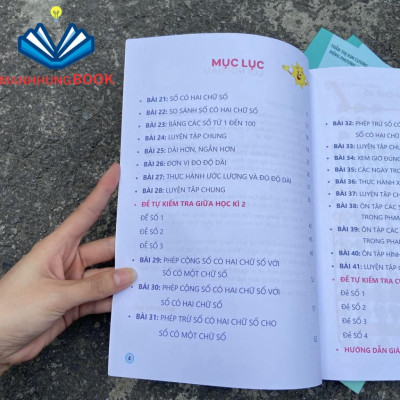 MANHHUNGBOOK
MỤC LỤC
• BÀI 21: SỐ CÓ HAI CHỮ SỐ
• BÀI 22: SO SÁNH SỐ CÓ HAI CHỮ SỐ
• BÀI 23: BẢNG CÁC SỐ TỪ 1 ĐẾN 100
• BÀI 24: LUYỆN TẬP CHUNG
• BÀI 25: DÀI HƠN, NGẮN HƠN
• BÀI 26: ĐƠN VỊ ĐO ĐỘ DÀI
• BÀI 27: THỰC HÀNH ƯỚC LƯỢNG VÀ ĐO ĐỘ DÀI
• BÀI 28: LUYỆN TẬP CHUNG
• ĐỀ TỰ KIỂM TRA GIỮA HỌC KÌ 2
ĐỀ SỐ 1
ĐỀ SỐ 2
ĐỀ SỐ 3
• BÀI 29: PHÉP CỘNG SỐ CÓ HAI CHỮ SỐ VỚI
SỐ CÓ MỘT CHỮ SỐ
• BÀI 30: PHÉP CỘNG SỐ CÓ HAI CHỮ SỐ VỚI
SỐ CÓ HAI CHỮ SỐ
• BÀI 31: PHÉP TRỪ SỐ CÓ HAI CHỮ SỐ CHO
SỐ CÓ MỘT CHỮ SỐ
• BÀI 32: PHÉP TRỪ SỐ
SỐ CÓ HAI CH
• BÀI 33: LUYỆN TẬP
• BÀI 34: XEM GIỜ ĐÚNG
• BÀI 35: CÁC NGÀY TRO
• BÀI 36: THỰC HÀNH X
• BÀI 37: LUYỆN TẬP
• BÀI 38: ÔN TẬP CÁC S
TRONG PHẠM
• BÀI 39: ÔN TẬP CÁC
TRONG PHẠ
• BÀI 40: ÔN TẬP HÌNH
• BÀI 41: LUYỆN TẬP
• ĐỀ TỰ KIỂM TRA CU
ĐỀ SỐ 1
ĐỀ SỐ 2
ĐỀ SỐ 3
ĐỀ SỐ 4
• HƯỚNG DẪN GIẢ